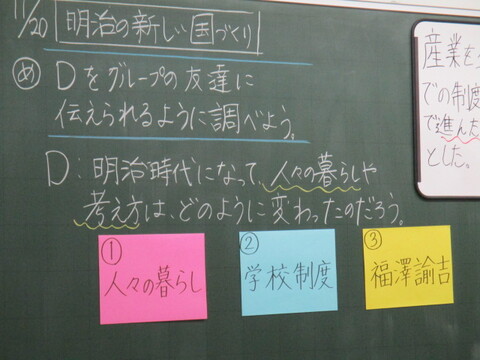 11/20 明治の新しい国づくり
め Dをグループの友達に
伝えられるように調べよう。
D:明治時代になって、人々の暮らしや
考え方は、どのように変わったのだろう。
① 人々の暮らし
② 学校制度
③ 福澤諭吉
産業を
での制度
で進んだ
とした。